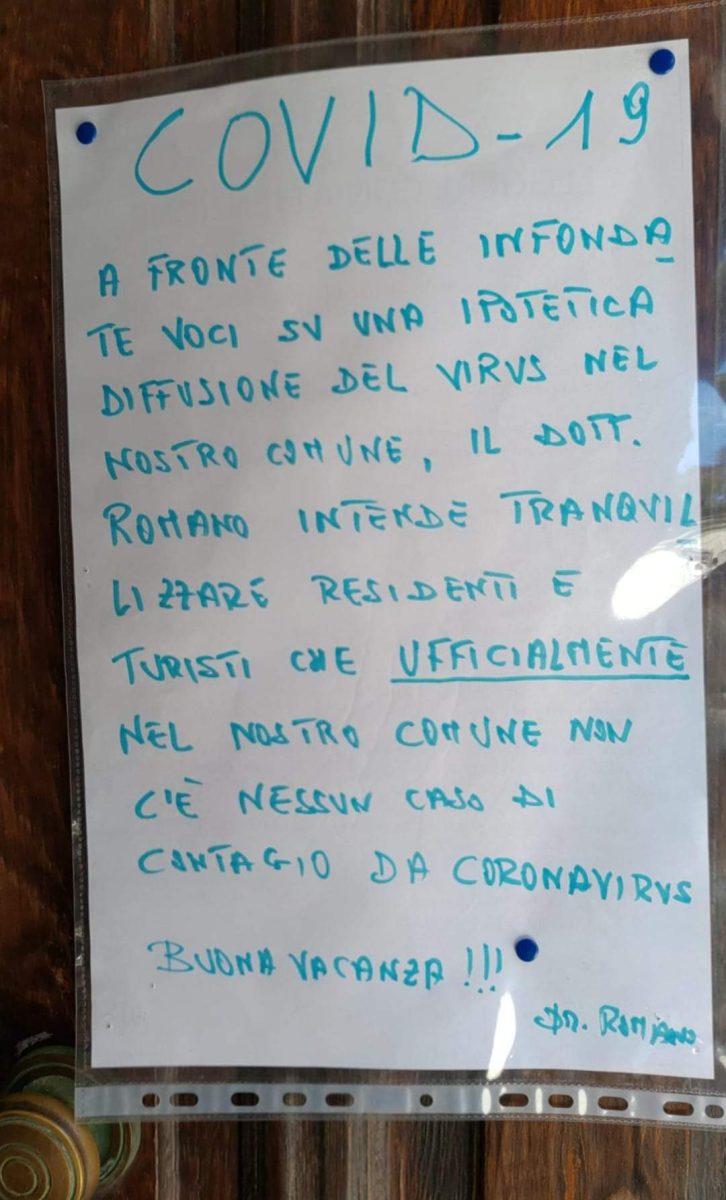 COVID-19
A FRONTE DELLE INFONDA
TE VOCI SU UNA IPOTETICA
DIFFUSIONE DEL VIRUS NEL
NOSTRO COMUNE, IL DOTT.
ROMANO INTENDE TRANQUIL
LIZZARE RESIDENTI E
TURISTI CHE UFFICIALMENTE
NEL NOSTRO COMUNE NON
C'È NESSUN CASO DI
CONTAGIO DA CORONAVIRUS
BUONA VACANZA !!!
DR. ROMANO